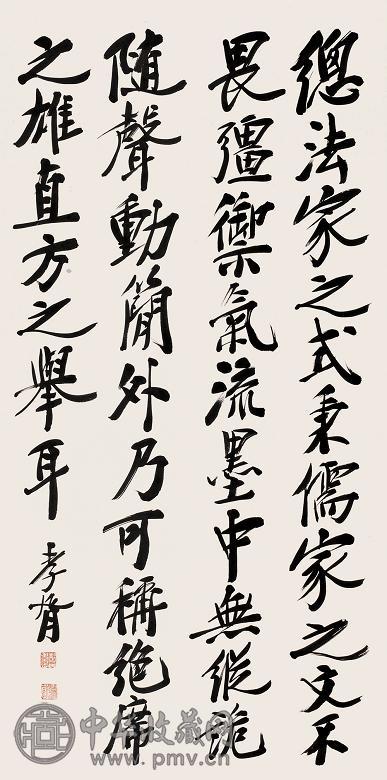 總法家之式秉儒家之文不
畏彊禦氣流墨中無縱詭
隨聲動簡外乃可稱絕席
之雄直方之舉耳
孝胥
中华收藏网
www.pmv.cn